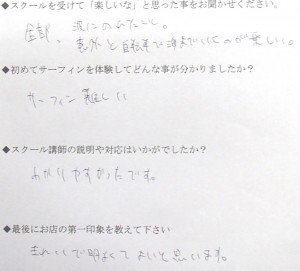 ◆スクールを受けて「楽しいな」と思った事をお聞かせください。
全部。波にのれたこと。
意外と自転車で海までいくのが楽しい。
◆初めてサーフィンを体験してどんな事が分かりましたか？
サーフィン難しい
◆スクール講師の説明や対応はいかがでしたか？
わかりやすかったです。
◆最後にお店の第一印象を教えて下さい
きれいで明るくてよいと思います。